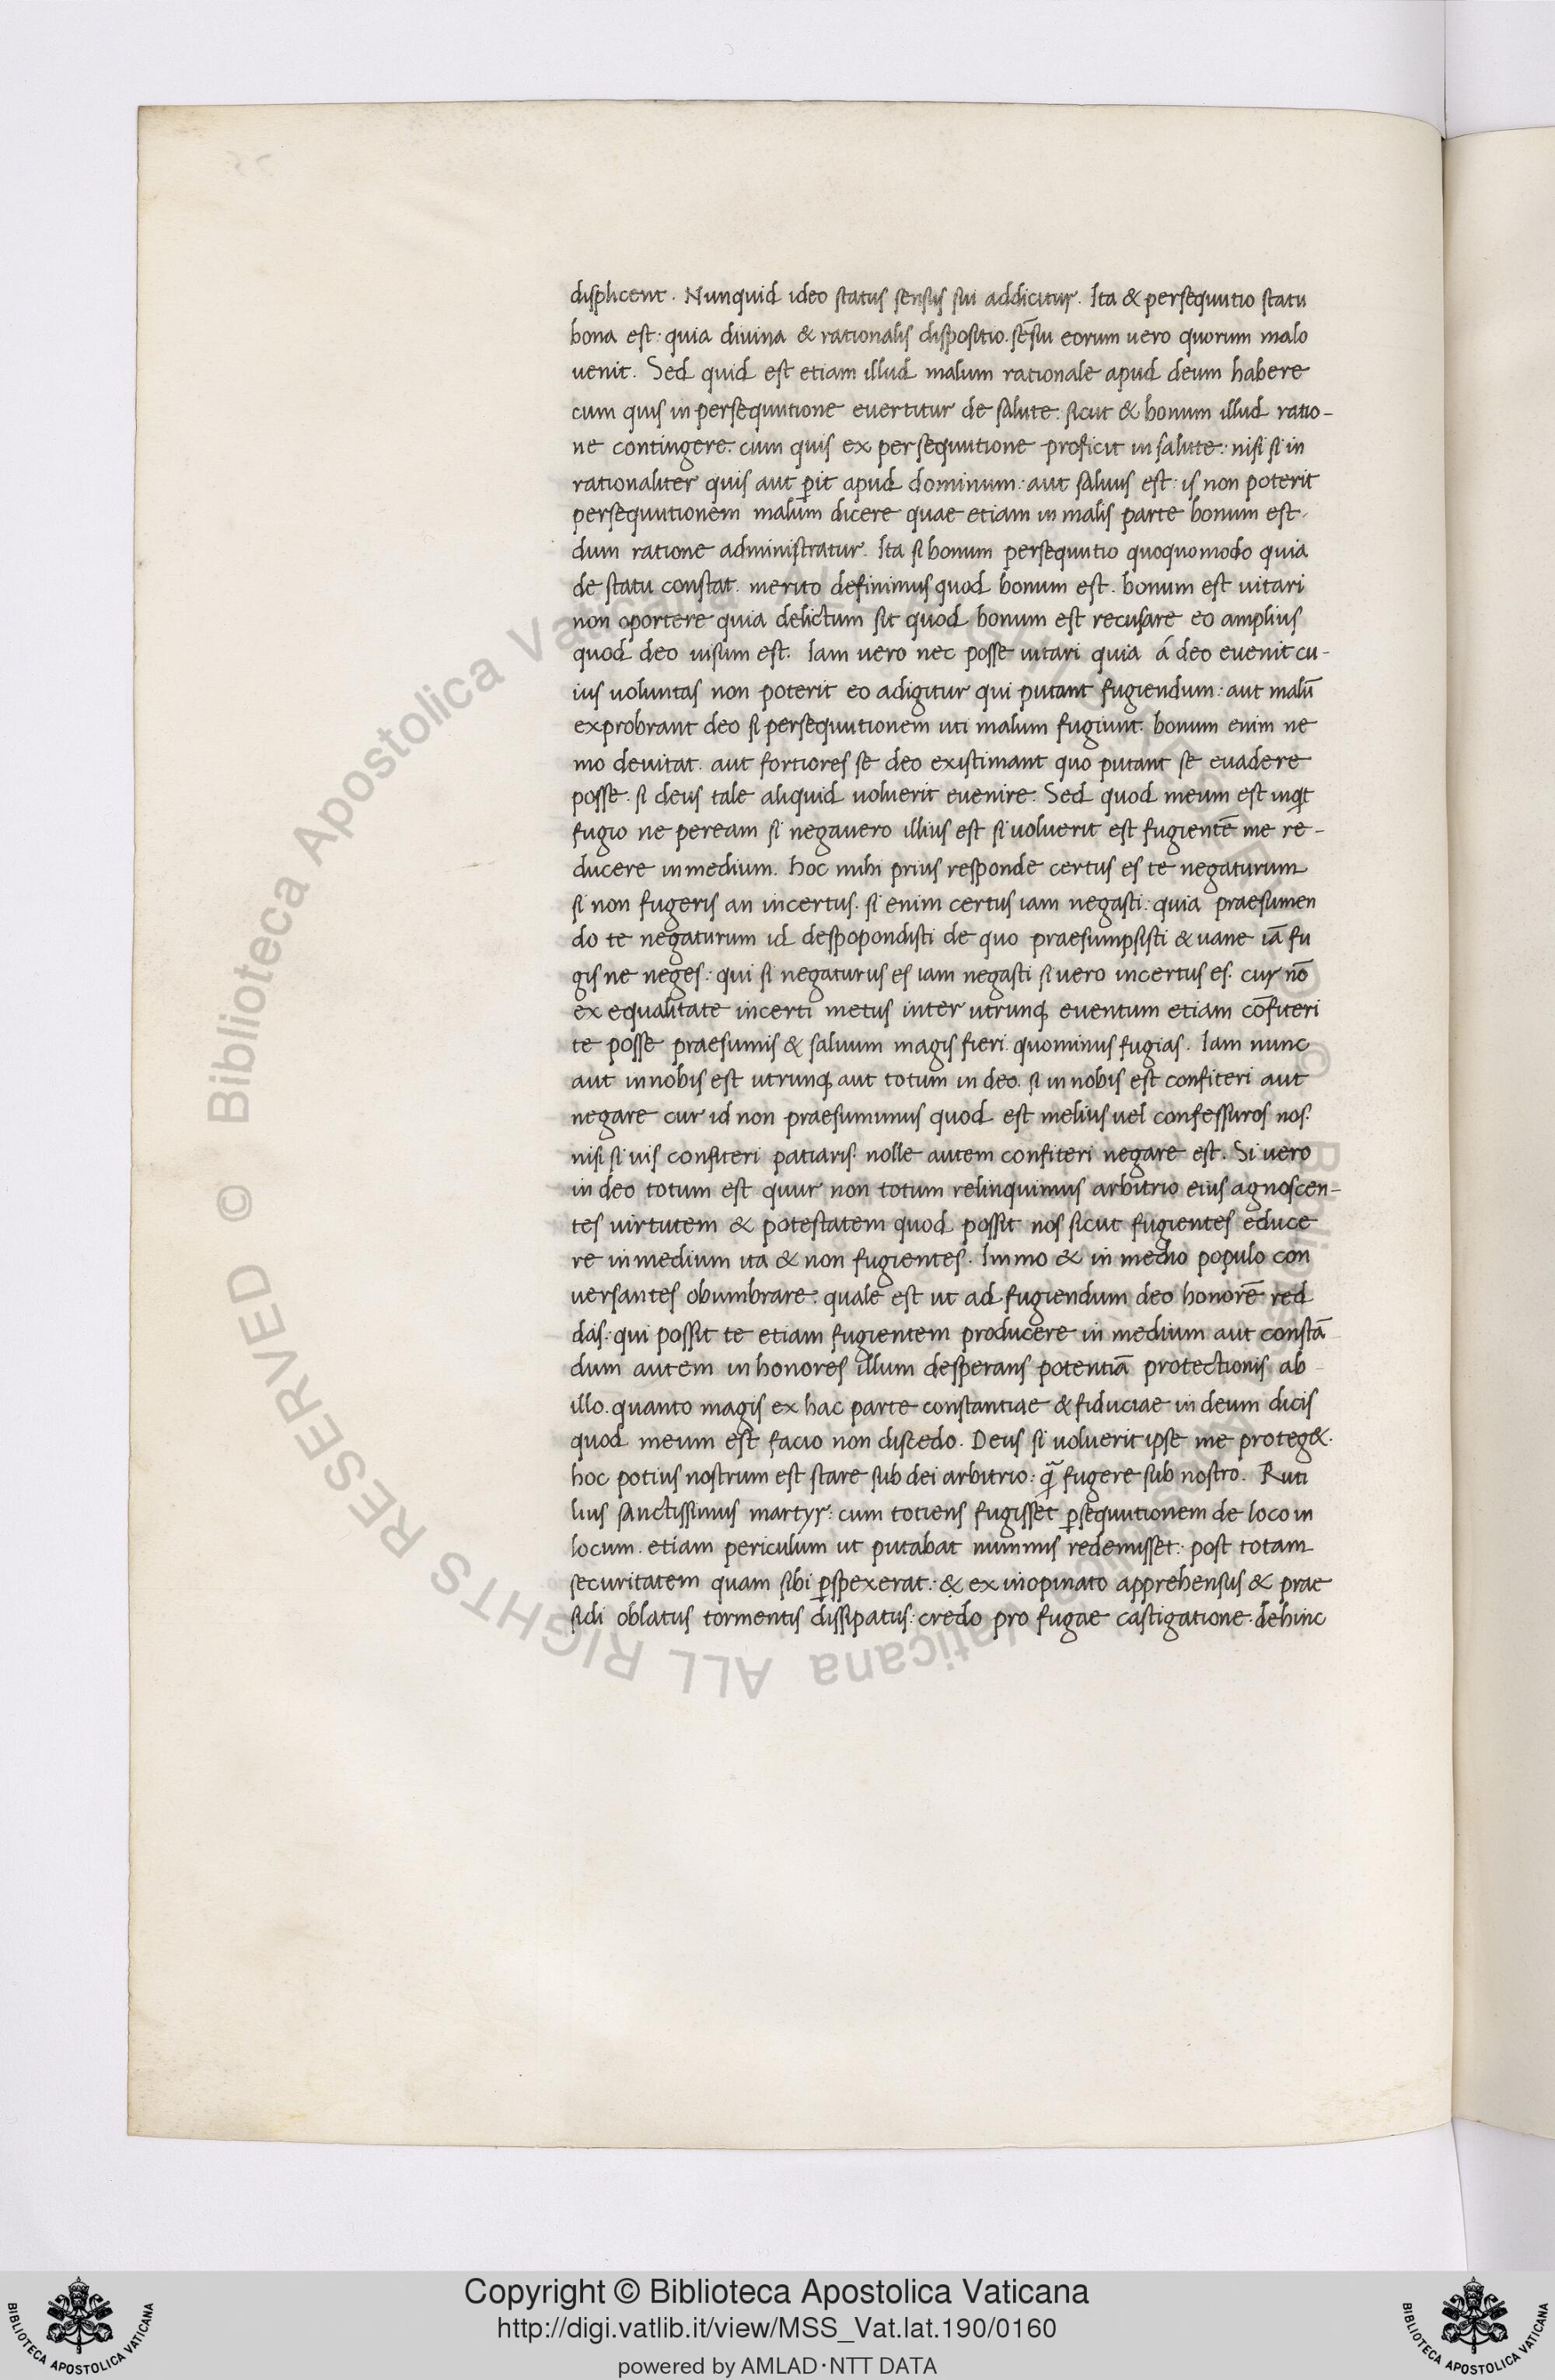 displicent. Nunquid ideo status sensus sui addicitur. Ita & persequutio statu
bona est: quia divina & rationalis dispositio. sēsiu eorum uero quorum malo
uenit. Sed quid est etiam illud malum rationale apud deum habere
cum quis in persequutione euertitur de salute: sicut & bonum illud ratio-
ne contingere: cum quis ex persequutione proficit in salute: nisi si in
rationaliter quis aut ꝑit apud dominum: aut saluus est: is non poterit
persequutionem malum dicere quae etiam in malis parte bonum est.
dum ratione administratur. Ita si bonum persequutio quoquomodo quia
de statu constat. merito definimus quod bonum est. bonum est uitari
non oportere quia delictum sit quod bonum est recusare eo amplius
quod deo uisum est. Iam uero nec posse uitari quia á deo euenit cu-
ius uoluntas non poterit eo adigitur qui putant fugiendum: aut malū
exprobrant deo si persequutionem uti malum fugiunt. bonum enim ne
mo deuitat. aut fortiores se deo existimant quo putant se euadere
posse. si deus tale aliquid uoluerit euenire. Sed quod meum est inqt
fugio ne peream si negauero illius est si uoluerit est fugientē me re-
ducere in medium. hoc mihi prius responde certus es te negaturum
si non fugeris an incertus. si enim certus iam negasti: quia praesumen
do te negaturum id despopondisti de quo praesumpsisti & uane iā fu
gis ne neges: qui si negaturus es iam negasti si uero incertus es. cur nō
ex equalitate incerti metus inter utrunq; euentum etiam cōfiteri
te posse praesumis & saluum magis fieri quominus fugias. Iam nunc
aut in nobis est utrunq; aut totum in deo. si in nobis est confiteri aut
negare cur id non praesumimus quod est melius uel confessuros nos.
nisi si uis confiteri patiaris. nolle autem confiteri negare est. Si uero
in deo totum est quur non totum relinquimus arbitrio eius agnoscen-
tes uirtutem & potestatem quod possit nos sicut fugientes educe
re in medium ita & non fugientes. Immo & in medio populo con
uersantes obumbrare. quale est ut ad fugiendum deo honorē red
das: qui possit te etiam fugientem producere in medium aut constā
dum autem in honores illum desperans potentiā protectionis ab
illo. quanto magis ex hac parte constantiae & fiduciae in deum dicis
quod meum est facio non discedo. Deus si uoluerit ipse me proteg&.
hoc potius nostrum est stare sub dei arbitrio: q̄ fugere sub nostro. Ruti
lius sanctissimus martyr: cum totiens fugisset ꝑsequutionem de loco in
locum. etiam periculum ut putabat nummis redemisset: post totam
securitatem quam sibi ꝑspexerat: & ex inopinato apprehensus & prae
sidi oblatus tormentis dissipatus: credo pro fugae castigatione. dehinc
© Biblioteca Apostolica Vaticana ALL RIGHTS RESERVED
Copyright © Biblioteca Apostolica Vaticana
http://digi.vatlib.it/view/MSS_Vat.lat.190/0160
powered by AMLAD·NTT DATA
BIBLIOTECA APOSTOLICA VATICANA
BIBLIOTECA APOSTOLICA VATICANA